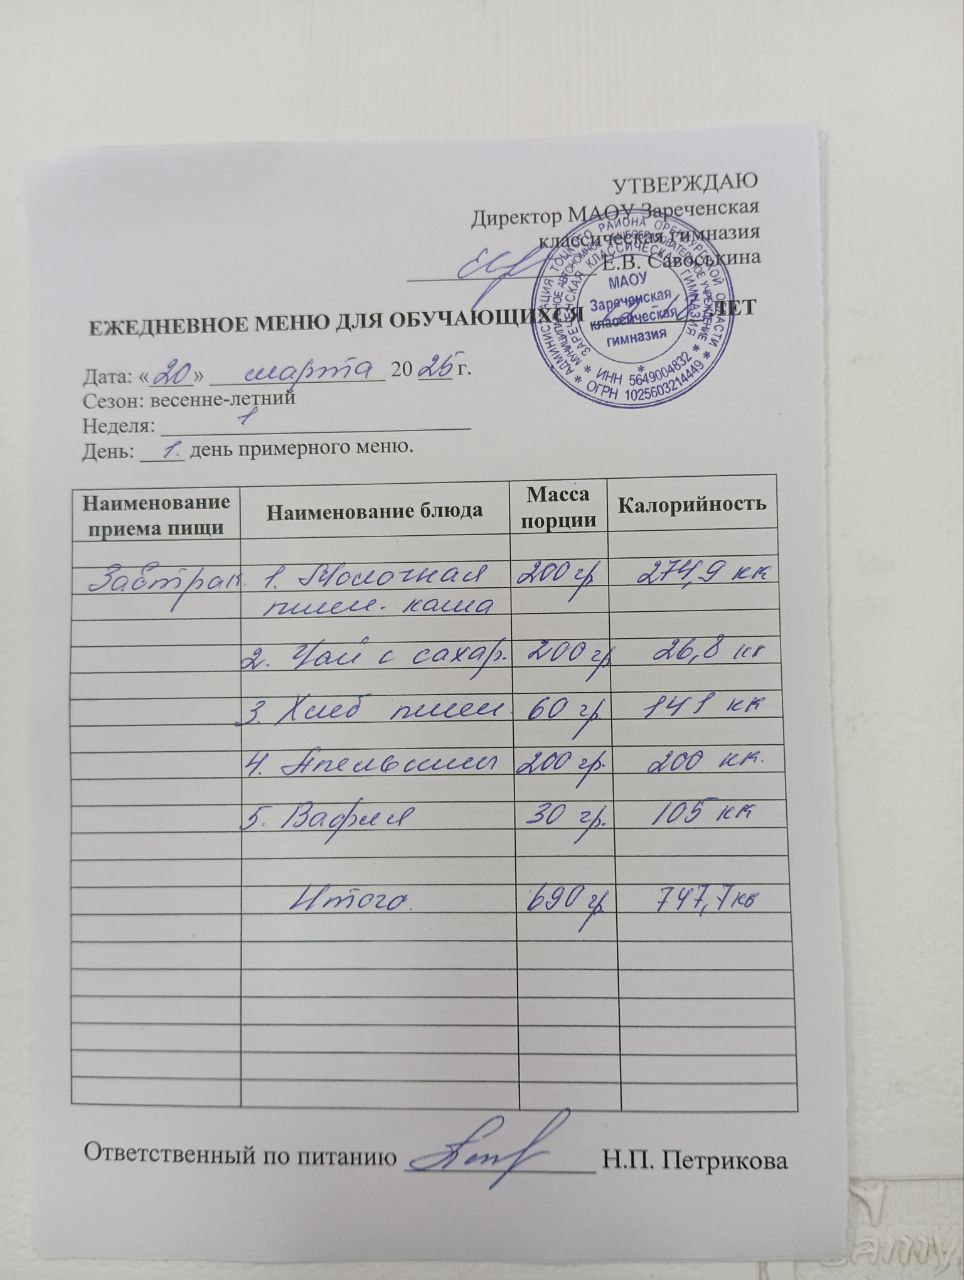 УТВЕРЖДАЮ
Директор МАОУ Зареченская
классическая гимназия
Е.В. Савоськина
АДМИНИСТРАЦИЯ ТОЦКОГО РАЙОНА ОРЕНБУРГСКОЙ ОБЛАСТИ
МУНИЦИПАЛЬНОЕ АВТОНОМНОЕ ОБЩЕОБРАЗОВАТЕЛЬНОЕ УЧРЕЖДЕНИЕ
ЗАРЕЧЕНСКАЯ КЛАССИЧЕСКАЯ ГИМНАЗИЯ
МАОУ
Зареченская
классическая
гимназия
* ИНН 5649004832 *
* ОГРН 1025603214449 *
ЕЖЕДНЕВНОЕ МЕНЮ ДЛЯ ОБУЧАЮЩИХСЯ ЛЕТ
Дата: «20» марта 2025 г.
Сезон: весенне-летний
Неделя: 1
День: 1. день примерного меню.
Наименование приема пищи Наименование блюда Масса порции Калорийность
Завтрак 1. Молочная 200 гр 274,9 кк
пшен. каша
2. Чай с сахар. 200 гр 26,8 кк
3. Хлеб пшен. 60 гр 141 кк
4. Апельсины 200 гр. 200 кк.
5. Вафля 30 гр. 105 кк
Итого. 690 гр 747,7 кк
Ответственный по питанию Н.П. Петрикова